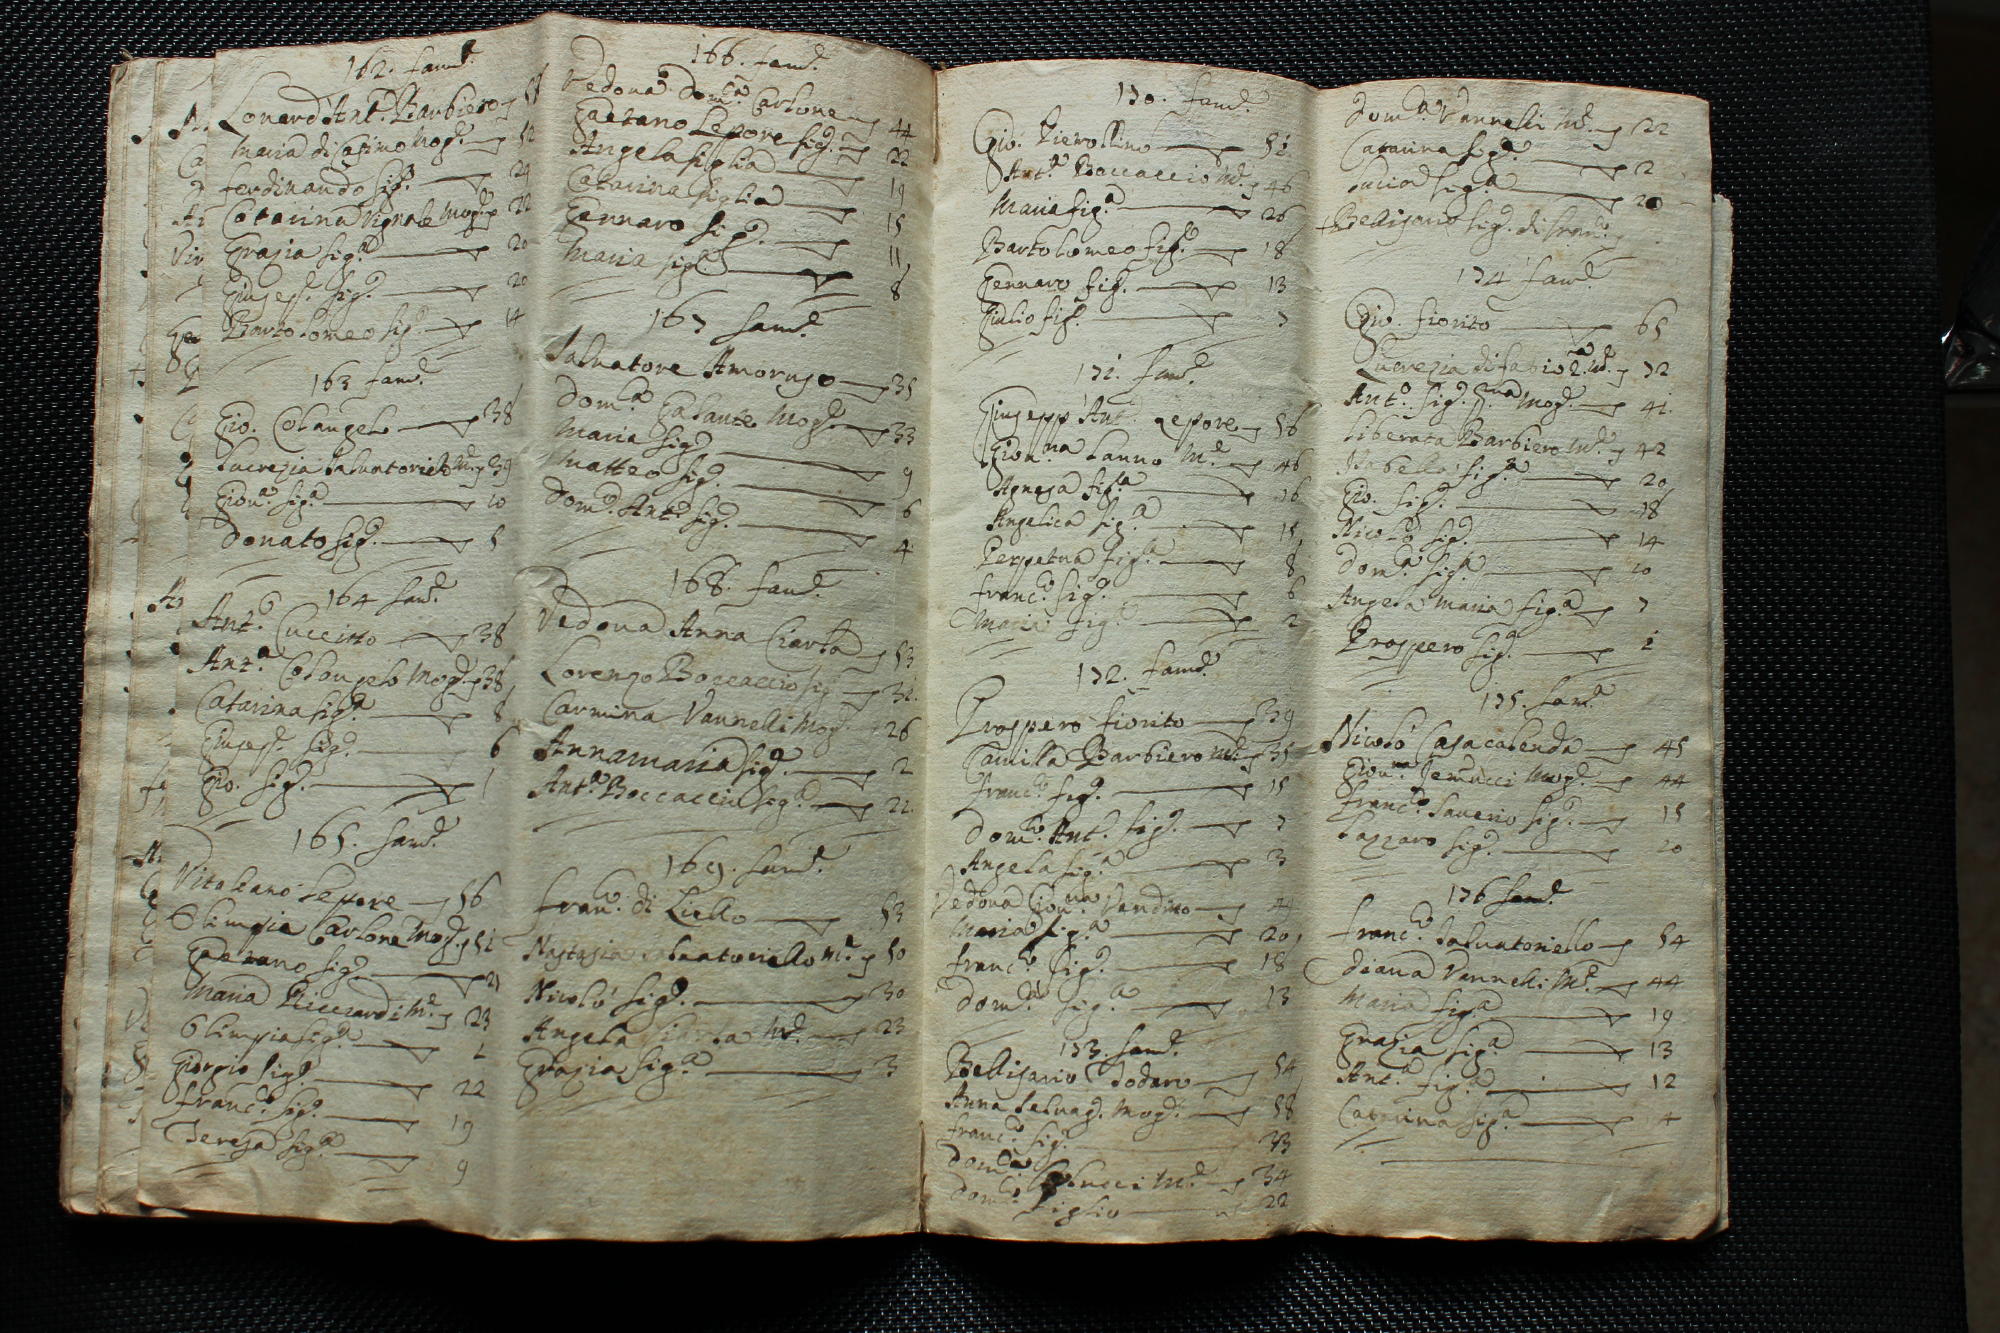 162. fam.ª
Lonard'Ant.º Barbiero
Maria di Cosimo Mog.e 52
ferdinando fig.º 24
Catarina Vignale Mog.e 22
Grazia fig.ª 20
Giusep.e fig.º 20
Bartolomeo fig.º 14
163 fam.ª
Gio. Colangelo 38
Lucrezia Salvatoriello M.e 39
Gion.ª fig.ª 10
Donato fig.º 5
164 fam.ª
Ant.º Cuccitto 38
Ant.ª Colangelo Mog.e 38
Catarina fig.ª 8
Giusep.e fig.º 6
Gio. fig.º 1
165. fam.ª
Vitoliano Lepore 56
Olimpia Carlone Mog.e 51
Gaetano fig.º 21
Maria Ricciardi M.e 23
Olimpia fig.ª
Giorgio fig.º 22
Franc.º fig.º 19
Teresa fig.ª 9
166. fam.ª
Vedova Dom.ca Carlone 44
Gaetano Lepore fig.º 22
Angela figlia 19
Catarina figlia 15
Gennaro fig.º 11
Maria fig.ª 8
167 fam.ª
Salvatore Amoruso 35
Dom.ª Galante Mog.e 33
Maria fig.ª 9
Matteo fig.º 6
Dom.co Ant.º fig.º 4
168. fam.ª
Vedova Anna Ciarla 53
Lorenzo Boccaccio fig.º 31
Carmina Vannelli Mog.e 26
Annamaria fig.ª 2
Ant.º Boccaccio fig.º 21
169. fam.ª
Fran.co di Liello 53
Nastasia Salvatoriello M.e 50
Nicolò fig.º 30
Angela M.e 23
Grazia fig.ª 3
170. fam.ª
Gio. Pierollino 51
Ant.ª Boccaccio M.e 46
Maria fig.ª 26
Bartolomeo fig.º 18
Gennaro fig.º 13
Giulio fig.º 7
171. fam.ª
Giusepp'Ant.º Lepore 56
Gion.na Lanno M.e 46
Agnesa fig.ª 16
Angelica fig.ª 15
Perpetua fig.ª 8
Franc.º fig.º 6
Maria fig.ª 2
172. fam.ª
Prospero Fiorito 39
Camilla Barbiero M.e 35
Franc.º fig.º 15
Dom.co Ant.º fig.º 7
Angela fig.ª 3
Vedova Gion.na Venditto 44
Maria fig.ª 20
Franc.º fig.º 18
Dom.ca fig.ª 13
173. fam.ª
Bellisario Iodaro 54
Anna Selvag. Mog.e 58
Franc.º fig.º 33
Dom.ca M.e 34
Dom.co figlio 22
Dom.ca Vannelli M.e 22
Catarina fig.ª 2
Lucia fig.ª
Bellisario fig.º di Fran.co
174 fam.ª
Gio. Fiorito 65
Lucrezia di Fabio 2.ª M.e 72
Ant.º fig.º p.ma Mog.e 41
Liberata Barbiero M.e 42
Isabella fig.ª 20
Gio. fig.º 18
Nicolò fig.º 14
Dom.ª fig.ª 10
Angela Maria fig.ª 7
Prospero fig.º 1
175. fam.ª
Nicolò Casacalenda 45
Gion.na Iemucci Mog.e 44
Franc.º Saverio fig.º 15
Lazzaro fig.º 10
176 fam.ª
Franc.º Salvatoriello 54
Diana Vannelli M.e 44
Maria fig.ª 19
Grazia fig.ª 13
Ant.ª fig.ª 12
Catarina fig.ª 4